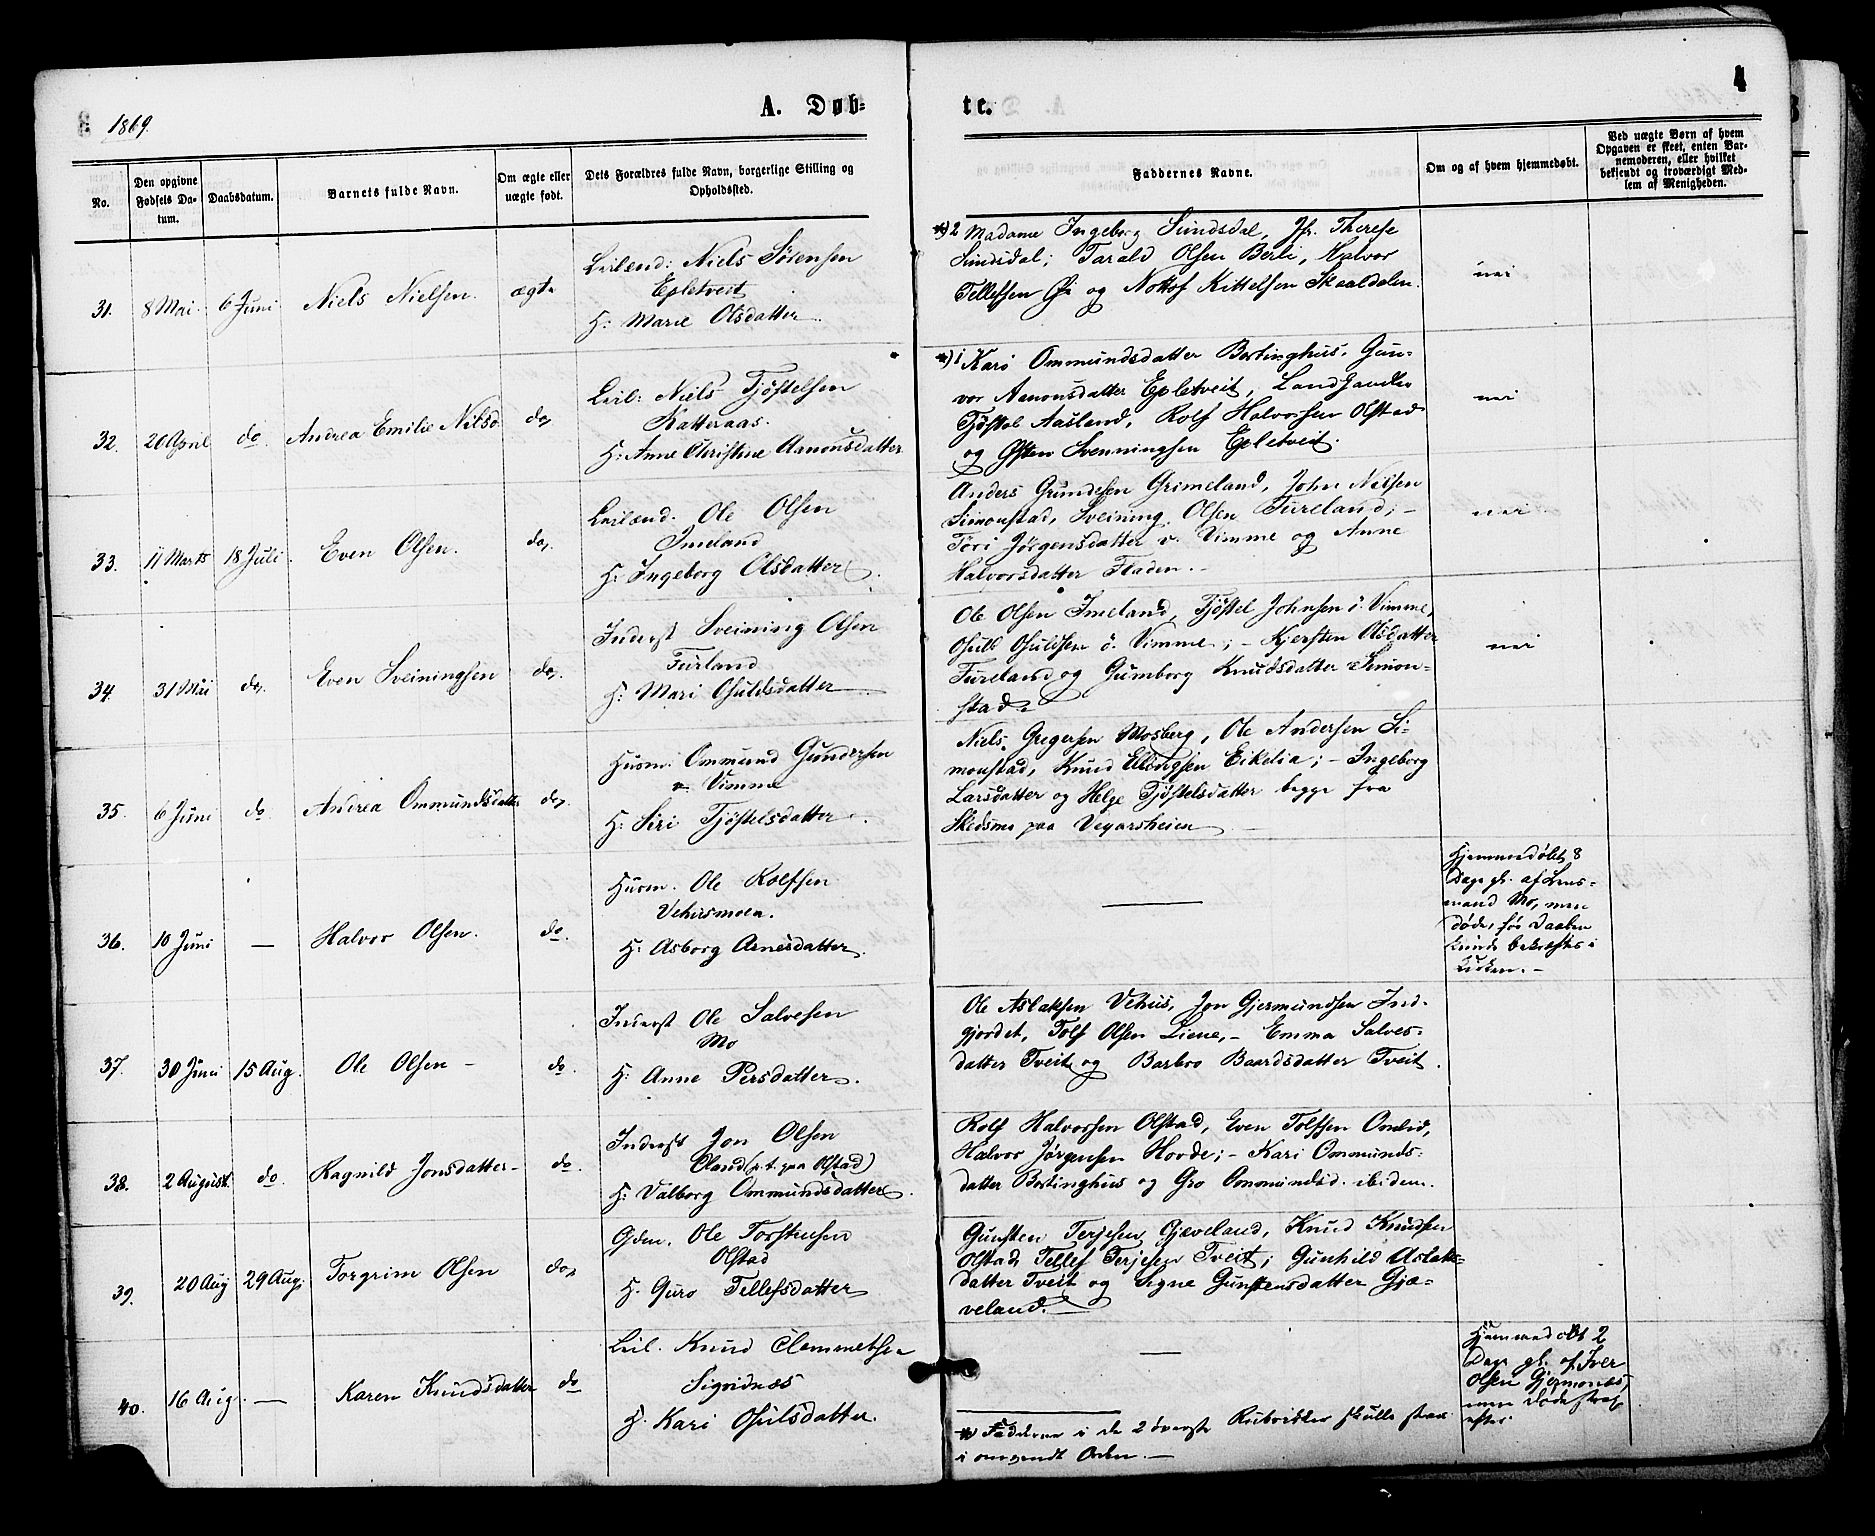 1869.
A. Døb-
te.
4
No.
Den opgivne Fødsels Da-tum.
Daabsdatum.
Barnets fulde Navn.
Om ægte eller uægte født.
Dets Forældres fulde Navn, borgerlige Stilling og Opholdssted.
Faddernes Navne.
Om og af hvem hjemmedøbt.
Ved uægte Børn af hvem Opgaven er skeet, enten Bar-nemoderen, eller hvilket bekjendt og troværdigt Med-lem af Menigheden.
31. 8 Mai. 6 Juni Niels Nielsen. ægte
Leilænd: Niels Sörensen
Epletveit
H: Marie Olsdatter
*) 2 Madame Ingeborg Sundsdal, Jfr. Therese
Sundsdal; Tarald Olsen Berli, Halvor
Tellefsen Øi og Nottof Kittelsen Skaaldalen.
nei
32. 20 April do. Andrea Emilie Nilsd. do,
Leil: Niels Tjöstelsen
Katteraas.
H: Anne Christine Aanonsdatter
*) 1 Kari Ommundsdatter Bertinghus, Gun-
vor Aanonsdatter Epletveit, Landhandler
Tjöstol Aasland, Rolf Halvorsen Olstad
og Östen Svenningsen Epletveit.
nei
33. 11 Marts 18 Juli. Even Olsen. do,
Leilænd. Ole Olsen
Imeland
H: Ingeborg Olsdatter.
Anders Gundesen Grimeland, John Nilsen
Simonstad, Sveining Olsen Tureland; -
Töri Jörgensdatter v. Vimme og Anne
Halvorsdatter Fladen. -
nei
34. 31 Mai do. Even Sveiningsen do,
Inderst Sveining Olsen
Turland
H: Mari Osuldsdatter
Ole Olsen Imeland, Tjöstel Johnsen ö. Vimme,
Osuld Osuldsen ö. Vimme; - Kjersten Olsdatter
Tureland og Gumborg Knudsdatter Simon-
stad.
nei
35. 6 Juni do Andrea Ommundsdatter do,
Husm. Ommund Gundersen
v. Vimme
H: Siri Tjöstelsdatter.
Niels Gregersen Mosberg, Ole Andersen Si-
monstad, Knud Ellevigsen Eikelia; - Ingeborg
Larsdatter og Helge Tjöstelsdatter begge fra
Skedsmo paa Vegarsheien
36. 10 Juni — Halvor Olsen. do.
Husm. Ole Rolfsen
Vehusmoen.
H: Asborg Arnesdatter.
—
Hjemmedöbt 8
Dage gl. af Lens-
mand Mo, men
döde, för Daaben
kunde bekræftes i
Kirken. -
37. 30 Juni 15 Aug. Ole Olsen - do.
Inderst Ole Salvesen
Mo
H: Anne Persdatter.
Ole Aslaksen Vehus, Jon Gjermundsen Ind-
gjordet, Tolf Olsen Liene, - Emma Salves-
datter Tveit og Barbro Baardsdatter Tveit.
38. 2 August. do. Ragnild Jonsdatter - do.
Inderst Jon Olsen
Oland (p. t. paa Olstad)
H: Valborg Ommundsdatter.
Rolf Halvorsen Olstad, Even Tolfsen Omlid,
Halvor Jörgensen Hovde; - Kari Ommunds-
datter Bertinghus og Gro Ommundsd. ibidem.
39. 20 Aug 29 Aug. Torgrim Olsen do,
Gdm. Ole Torstensen
Olstad
H. Guro Tellefsdatter
Gunsten Terjesen Gjæveland, Knud Knudsen
Olstad, Tellef Terjesen Tveit; Gunhild Aslaks-
datter Tveit og Signe Gunstensdatter Gjæ-
veland.
40. 16 Aug. — Karen Knudsdatter do
Leil. Knud Clemmetsen
Sigridnæs
H. Kari Osulsdatter.
—
Hjemmedöbt 2
Dage gl. af Iver
Olsen Gjermones,
men döde strax
efter
*) Fadderne i de 2 överste Rubrikker skulle staa
i omvendt Orden. -